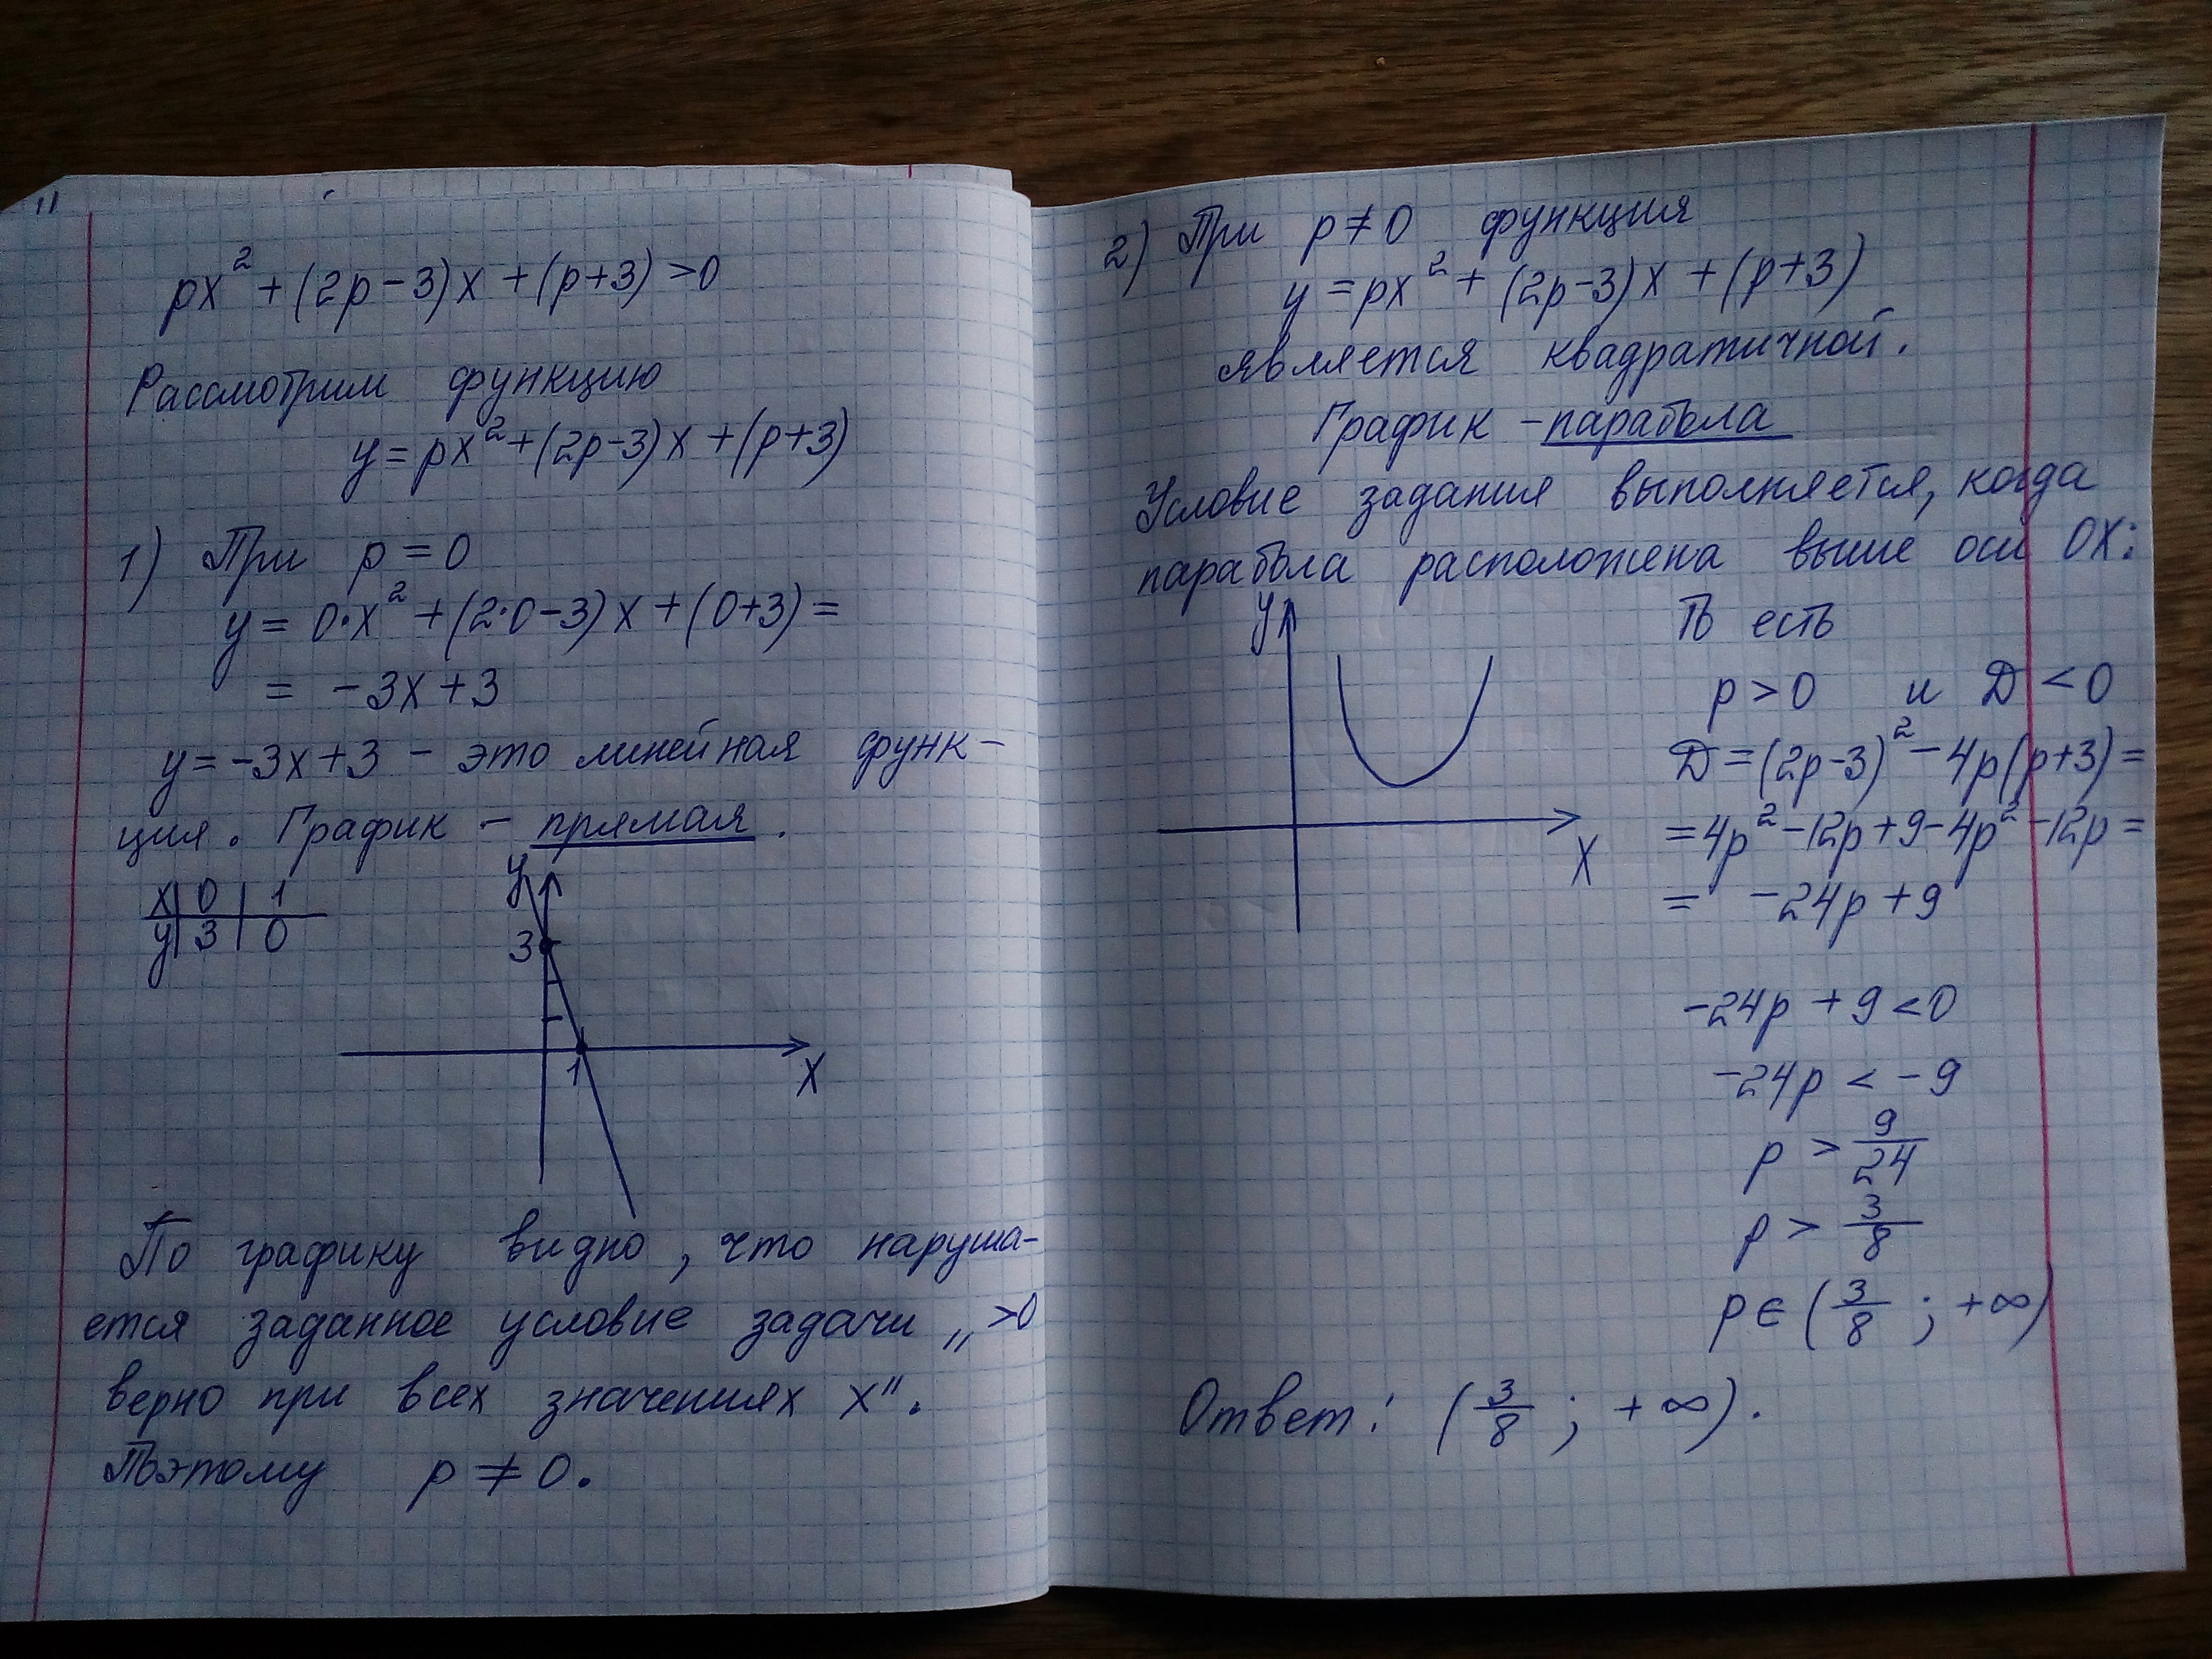 px² + (2p-3)x + (p+3) >0
Рассмотрим функцию
y = px² + (2p-3)x + (p+3)
1) При p = 0
y = 0·x² + (2·0-3)x + (0+3) =
= -3x+3
y = -3x+3 - это линейная функ-
ция. График - прямая.
x | 0 | 1
y | 3 | 0
y
3
1
x
По графику видно, что наруша-
ется заданное условие задачи „>0
верно при всех значениях x".
Поэтому p ≠ 0.
2) При p ≠ 0 функция
y = px² + (2p-3)x + (p+3)
является квадратичной.
График - парабола
Условие задания выполняется, когда
парабола расположена выше оси OX:
y
x
То есть
p > 0 и D < 0
D = (2p-3)² - 4p(p+3) =
= 4p² - 12p + 9 - 4p² - 12p =
= -24p + 9
-24p + 9 < 0
-24p < -9
p > 9/24
p > 3/8
p ∈ (3/8 ; +∞)
Ответ: (3/8 ; +∞).